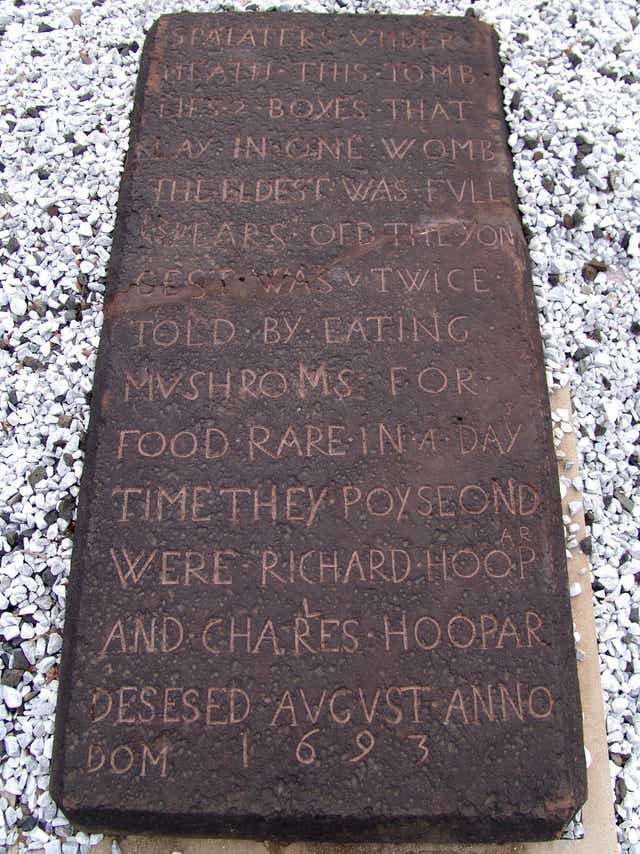 VNDER
NEATH · THIS · TOMB
LIES · 2 · BOYES · THAT
LAY · IN · ONE WOMB
THE ELDEST · WAS FVLL
YEARS · OLD · THE YON
GEST · WAS · V · TWICE ·
TOLD · BY · EATING
MVSHROMS · FOR ·
FOOD · RARE · IN · A · DAY
TIME THEY · POYSEOND
AR
WERE · RICHARD · HOOP
L
AND · CHARES · HOOPAR
DESESED AVGVST · ANNO
DOM 1 6 9 3